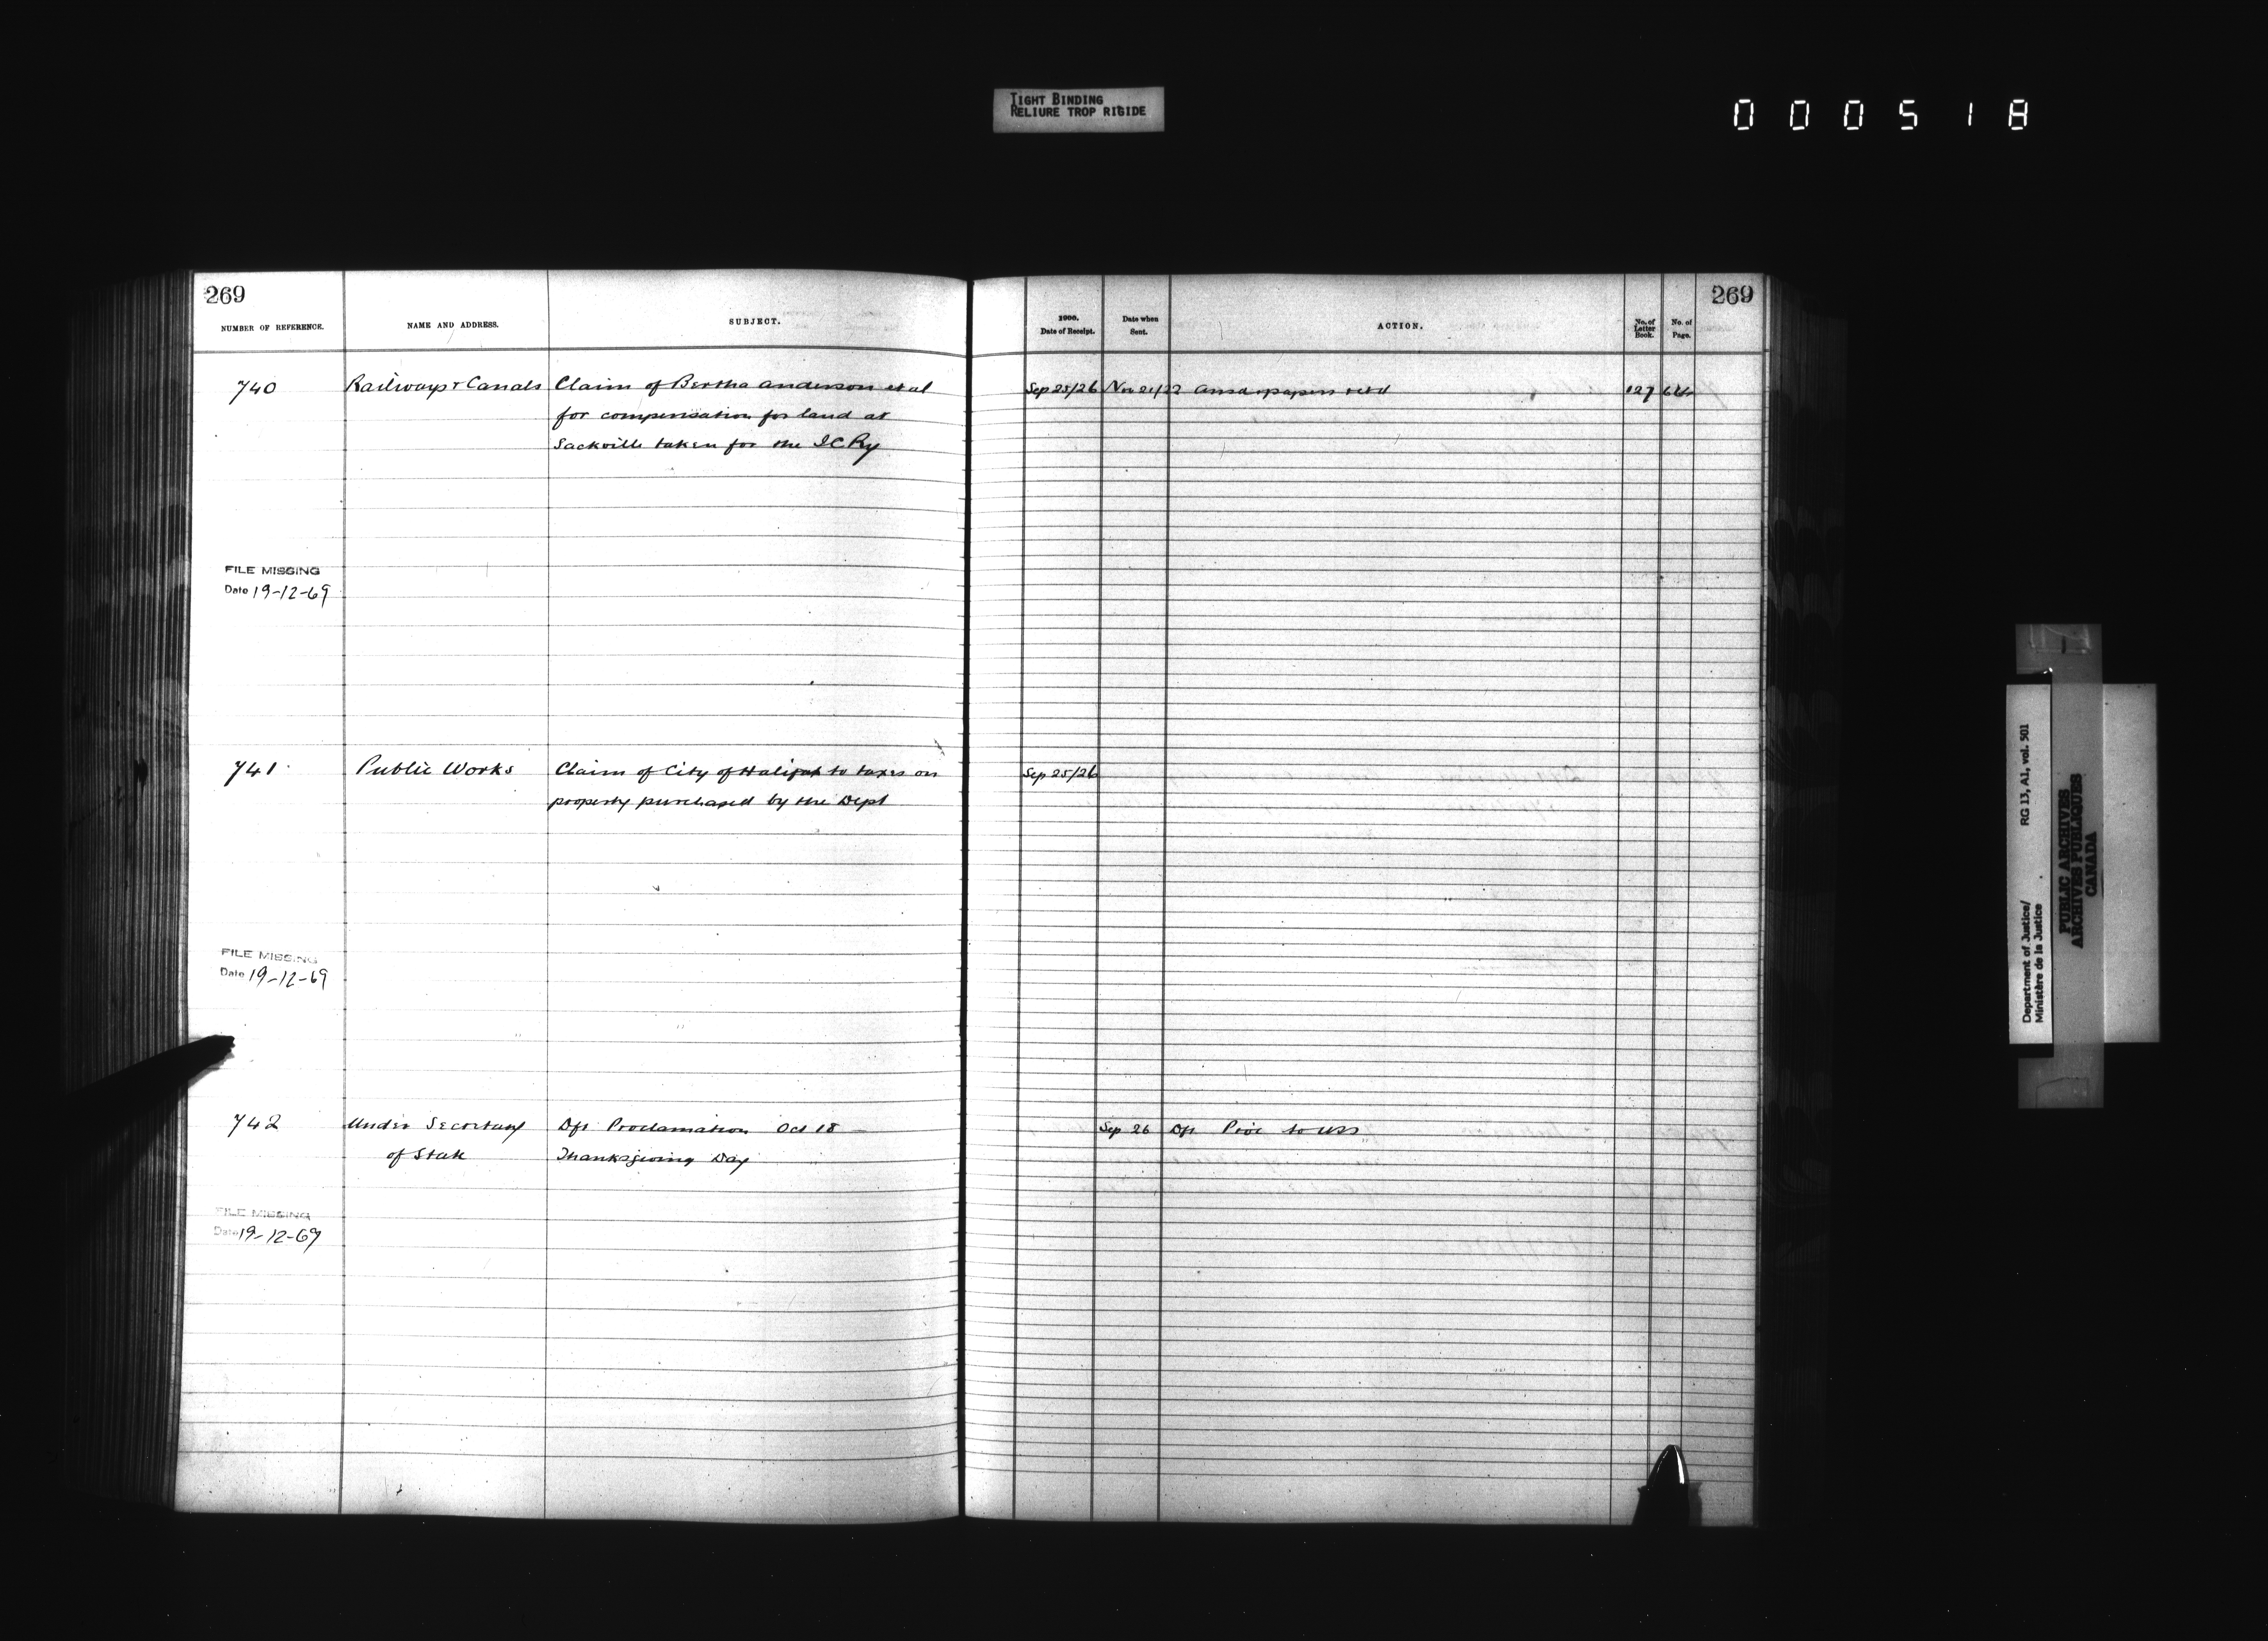 TIGHT BINDING
RELIURE TROP RIGIDE
000518
269
NUMBER OF REFERENCE.
NAME AND ADDRESS.
SUBJECT.
1900.
Date of Receipt.
Date when
Sent.
ACTION.
No. of
Letter
Book.
No. of
Page.
269
740 Railways & Canals Claim of Bertha Anderson et al Sep 25/26 Nov 21/22 Ansd & papers retd 127
for compensation for land at
Sackville taken for the ICRy
FILE MISSING
Date 19-12-69
741 Public Works Claim of City of Halifax to taxes on Sep 25/26
property purchased by the Dept
FILE MISSING
Date 19-12-69
742 Under Secretary Dft Proclamation Oct 18 Sep 26 Dft to USS
of State Thanksgiving Day
FILE MISSING
Date 19-12-69
Department of Justice/ RG 13, A1, vol. 501
Ministère de la Justice
PUBLIC ARCHIVES
ARCHIVES PUBLIQUES
CANADA